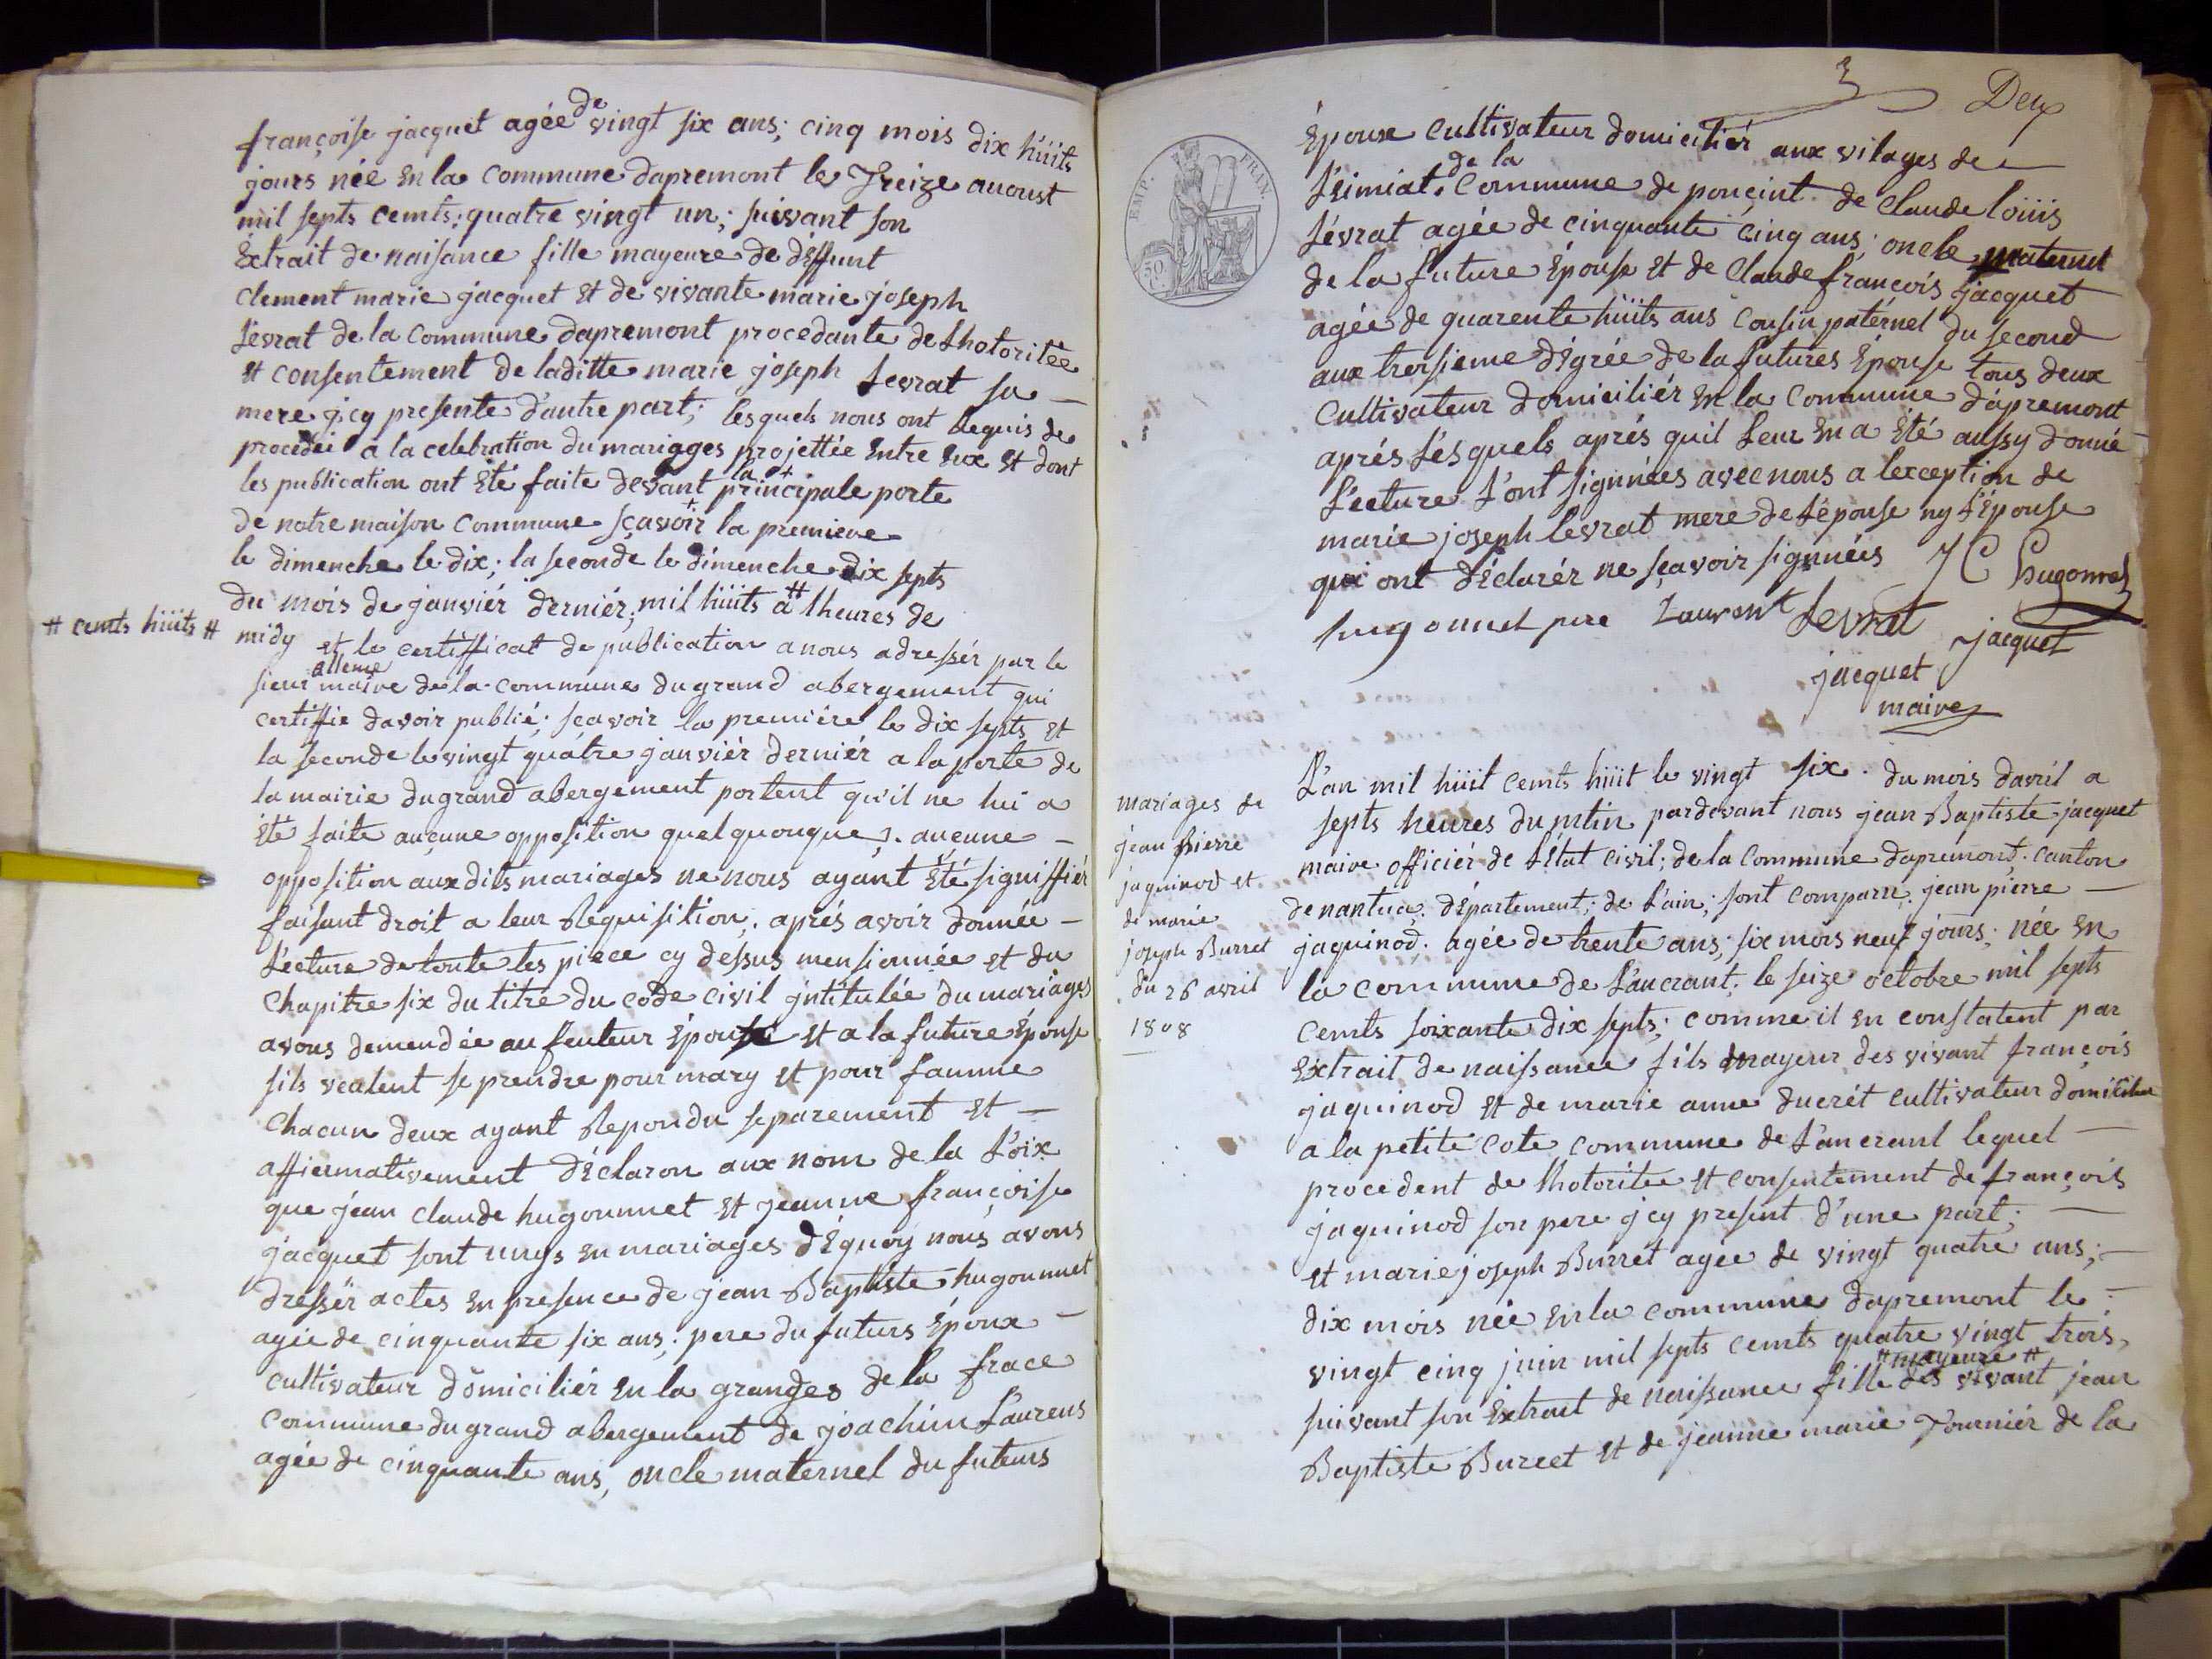 françoise jacquet agée de vingt six ans; cinq mois dix hüits
jours née en la commune dapremont le Treize auoust
mil septs cemts; quatre vingt un; suivant son
Extrait de naisance fille mayeure de déffunt
clement marie jacquet et de vivante marie joseph
Levrat de la commune dapremont procedante de Lhotoritée
et consentement de laditte marie joseph Levrat sa
mere jcy presente d'autre part; lesquels nous ont Requis de
procédéi a la celebration du mariages projettée Entre Eux et dont
les publication ont Eté faite devant la principale porte
de notre maison commune sçavoir la premiere
le dimenche le dix; la seconde le dimenche dix septs
du mois de janviér derniér; mil hüits # a lheures de
# cemts hüits #
midy et le certifficat de publication a nous adressér par le
sieur maire de la commune du grand abergement qui
certiffie davoir publié; scavoir la premiére le dix septs et
la seconde le vingt quatre janviér derniér a la porte de
la mairie du grand abergement portent qu'il ne lui a
Eté faite aucune opposition quelquonque; aucune
opposition aux dits mariages ne nous ayant Eté signiffiér
faisant droit a leur Requisition; aprés avoir donnée
Lecture de toute les piece cy dessus mensionnée et du
chapitre six du titre du code civil jntitulée du mariages
avons demendée au feuteur Epouse et a la future Epouse
sils veulent se prendre pour mary et pour famme
chacun deux ayant Repondu separement et
affiermativement déclaron aux nom de la Loix
que jean claude hugounnet et jeanne françoise
jacquet sont unys en mariages déquoy nous avons
dressér actes en presence de jean Baptiste hugounnet
agée de cinquante six ans; pere du futurs Epoux
cultivateur domiciliér en la granges de la frace
commune du grand abergement de joachim Laurens
agée de cinquante ans, oncle maternel du futeurs
Deux
Epoux cultivateur domiciliér aux vilages de
Leimiat de la commune de ponçint de claude loüis
Lévrat agée de cinquante cinq ans; oncle maternel
de la future Epouse et de claude françois jacquet
agée de quarente hüits ans cousin paternel du second
aux troisieme dégrée de la futures Epouse tous deux
cultivateur domiciliér en la commune dapremont
aprés Lésquels aprés quil Leur en a Eté aussy donné
Lecture L'ont signnées avec nous a lexception de
marie joseph levrat mere de Lépouse ny L'Epouse
qui ont déclarér ne sçavoir signnées J C hugonnet
hugonnet pere Laurent Levrat jacquet
jacquet
maire
mariages de
jean pierre
jaquinod et
de marie
joseph Burret
du 26 avril
1808
L'an mil hüit cemts hüit le vingt six du mois davril a
septs heures du mtin pardevant nous jean Baptiste jacquet
maire officiér de Létat civil; de la commune dapremont; canton
de nantua; département; de L'ain; sont comparu; jean pierre
jaquinod; agée de trente ans; six mois neuf jours; née en
la commune de L'ancrant; le seize octobre mil septs
cemts soixante dix septs; comme il en constatent par
Extrait de naissance fils mayeur des vivant françois
jaquinod et de marie anne ducrét cultivateur domicilier
a la petite cote commune de L'ancrant lequel
procedent de Lhotoritée et consentement de françois
jaquinod son pere jcy present d'une part;
et marie joseph Burret agée de vingt quatre ans;
dix mois née en la commune dapremont le
vingt cinq juin mil septs cemts quatre vingt trois,
suivant son Extrait de naissance fille # mayeure # des vivant jean
Baptiste Burret et de jeanne marie Tourniér de la
EMP. FRAN.
50 C.